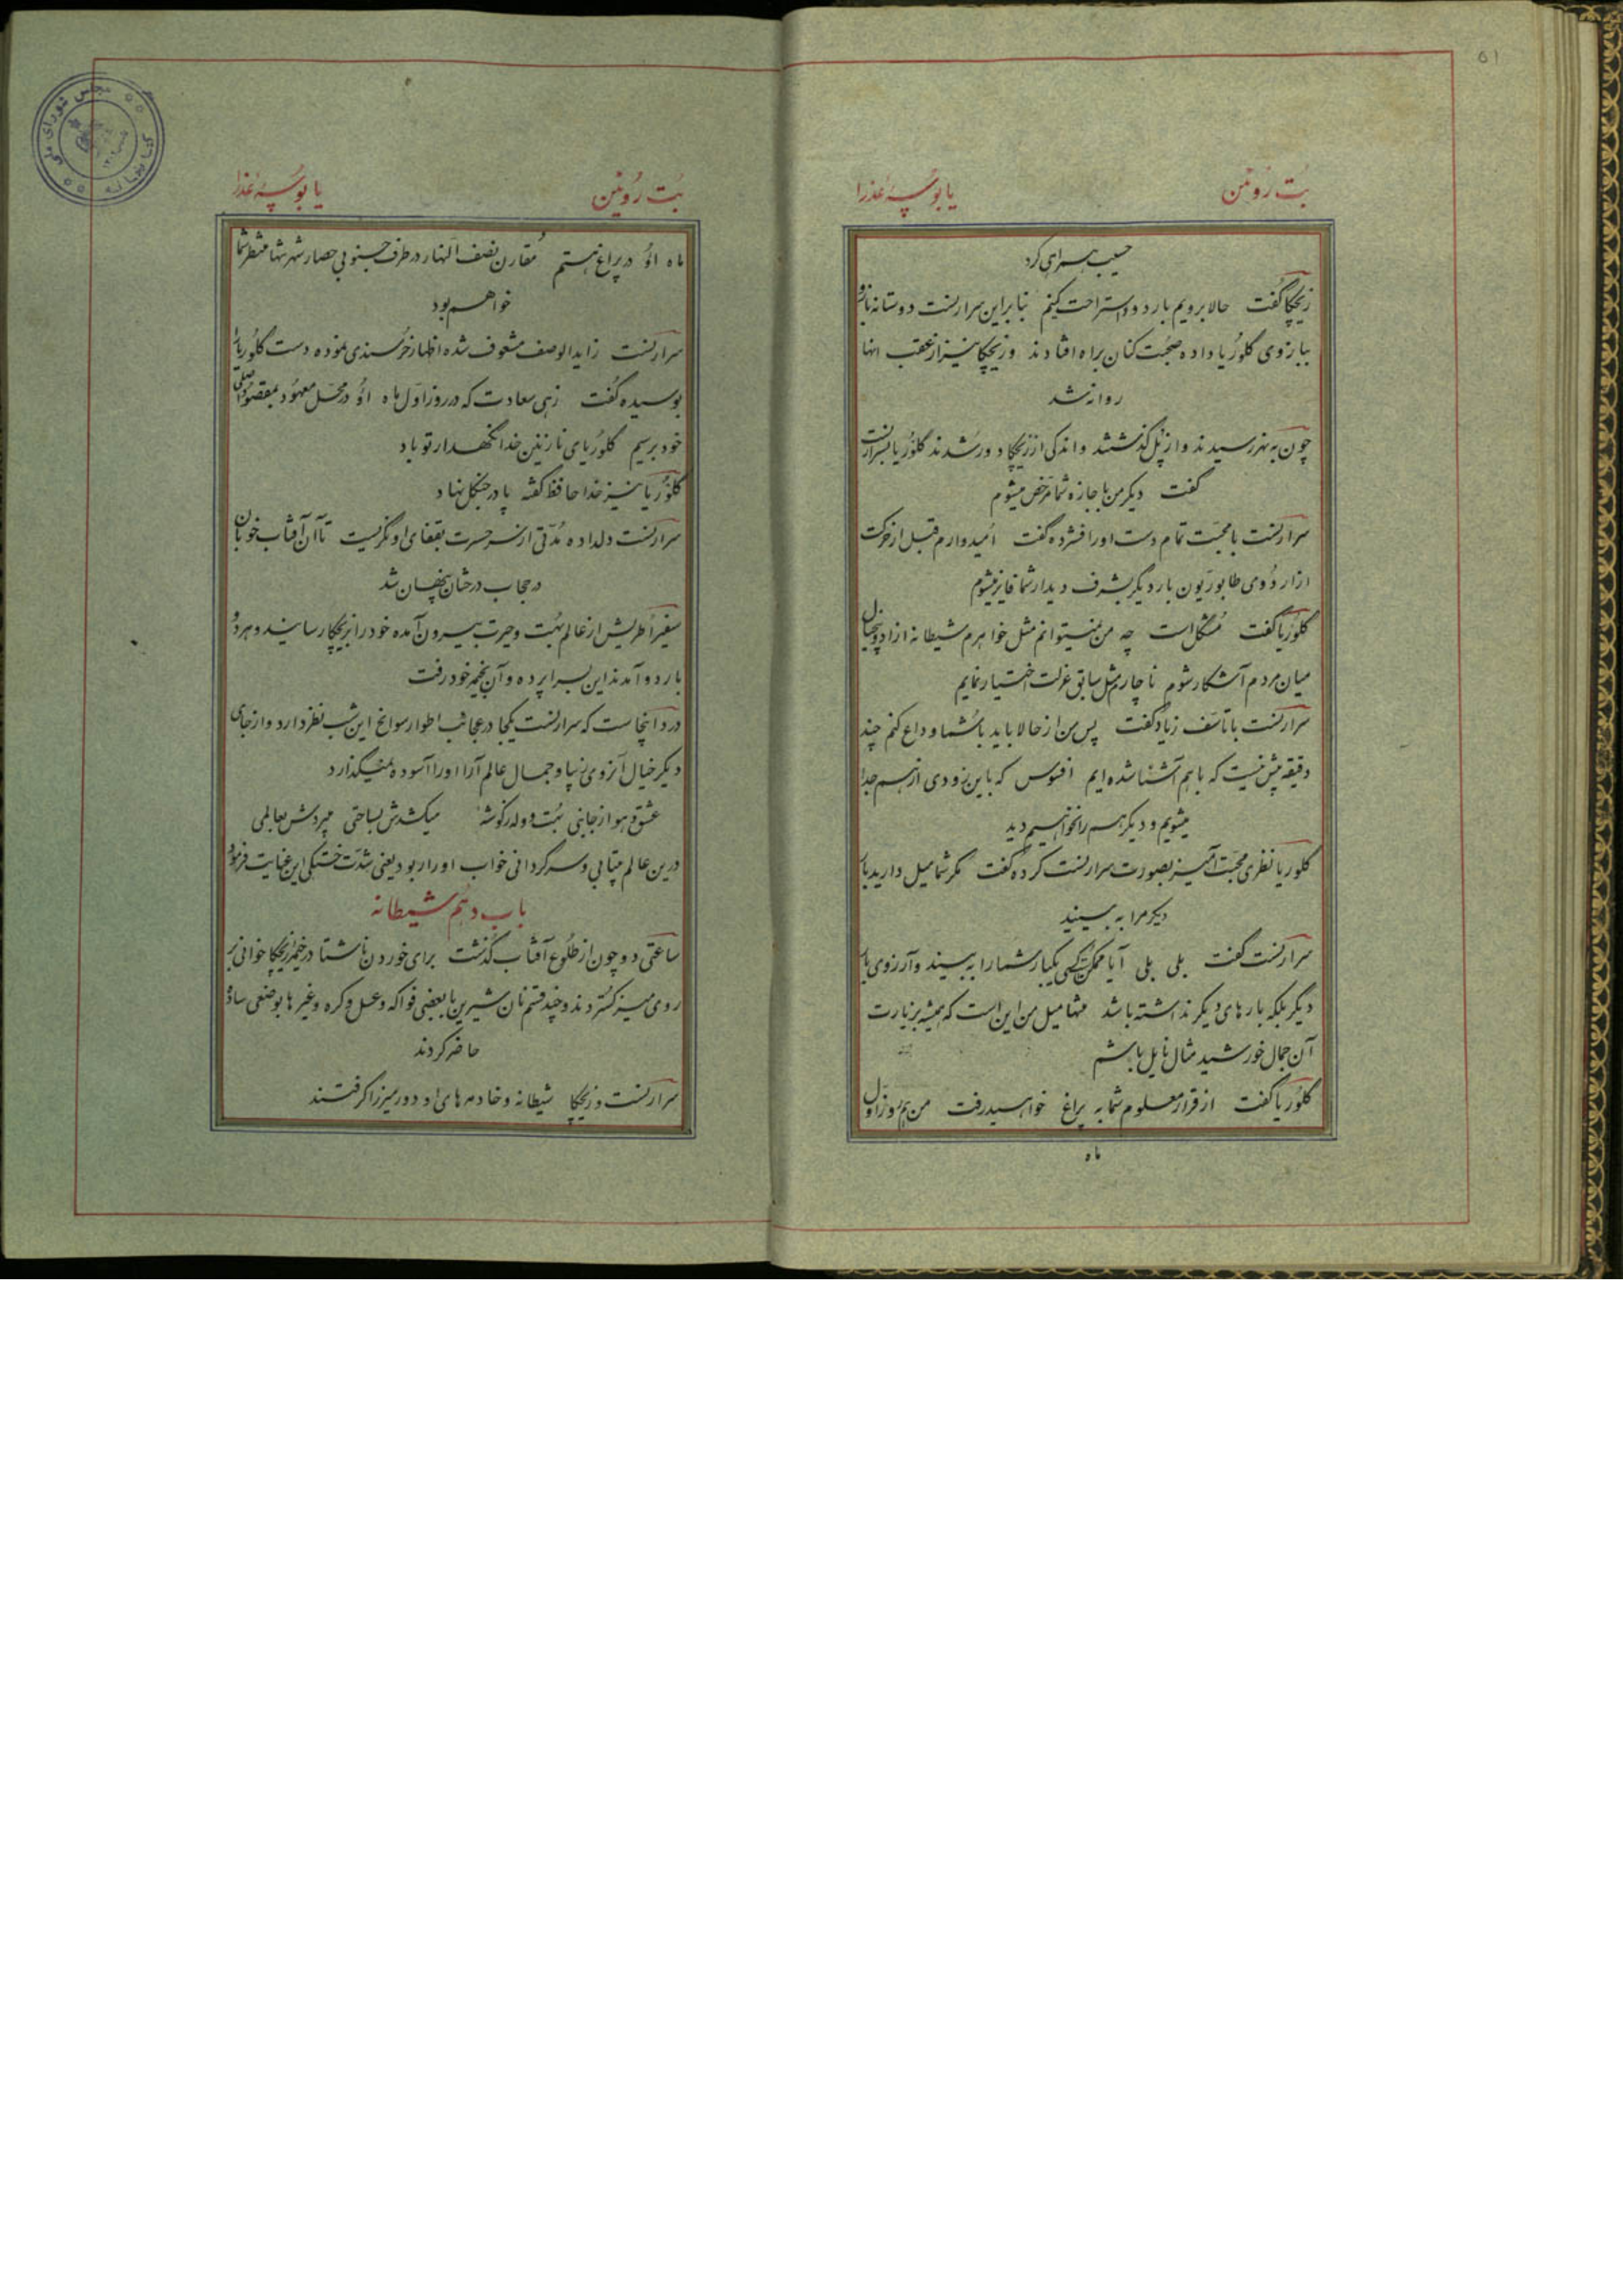 ۵۱
بُت رُوئین یا بُوسهٔ عُذرا
حسیب همراهی کرد
زیچکا گفت حالا برویم باردو و استراحت کنیم بنابراین سرارنست دوستانه بازو
ببازوی گلوریا داده صحبت کنان براه افتادند و زیچکا نیز از عقب انها
روانه شد
چون به نهر رسیدند و از پُل گذشتند و اندکی از زیچکا دور شدند گلوریا بسرارنست
گفت دیگر من با جازه شما مرخص میشوم
سرارنست با محبّت تمام دست او را فشرده گفت اُمیدوارم قبل از حرکت
از اردُوی طابوریون بار دیگر بشرف دیدار شما فایز میشوم
گلوریا گفت مُشکل است چه من نمیتوانم مثل خواهرم شیطانه ازاد و بیخیال
میان مردم آشکار شوم ناچارم مثل سابق عزلت اختیار نمایم
سرارنست با تاسّف زیاد گفت پس من از حالا باید با شُما وداع کنم چند
دقیقه بیش نیست که باهم آشنا شده‌ایم افسوس که باین زودی از هم جدا
میشویم و دیگر هم را نخواهیم دید
گلوریا نظری محبّت آمیز بصورت سرارنست کرده گفت مگر شما میل دارید بار
دیگر مرا به بینید
سرارنست گفت بلی بلی آیا ممکن است کسی یکبار شما را به بیند و آرزوی بار
دیگر بلکه بارهای دیگر نداشته باشد منتها میل من این است که همیشه بزیارت
آن جمال خورشید مثال نایل باشم
گلوریا گفت از قرار معلوم شما به پراغ خواهید رفت من هم روز اوّل
ماه
بُت رُوئین یا بُوسهٔ عُذرا
ماه اوُ در پراغ هستم مُقارن نصف النهار در طرف جنوبی حصار شهر شما منتظر شما
خواهم بود
سرارنست زاید الوصف مشعوف شده اظهار خُرسندی نموده دست گلوریا را
بوسیده گفت زهی سعادت که در روز اوّل ماه اوُ در محّل معهوُد بمقصود اصلی
خود برسیم گلوریای نازنین خدا نگهدار تو باد
گلوریا نیز خدا حافظ گفته پا در جنگل نهاد
سرارنست دلداده مُدّتی از سر حسرت بقفای او نگریست تا آن آفتاب خوبان
در حجاب درختان پنهان شد
سفیر اطریش از عالم بُهت و حیرت بیرون آمده خود را بزیچکا رسانید و هر دو
باردو آمدند این بسراپرده و آن بخیمه خود رفت
درد اینجاست که سرارنست یکجا در عجائب اطوار سوانح این شب نظر دارد و از جای
دیگر خیال آنروی زیبا و جمال عالم آرا او را آسوده نمیگذارد
عشق و هوا ز جانبی بُت و وله ز گوشهٔ میکشدش بساحتی میبردش بعالمی
درین عالم بیتابی و سرگردانی خواب او را ربود یعنی شدّت خستگی این عنایت فرمود
باب دهم شیطانه
ساعتی دو چون از طلُوع آفتاب گذشت برای خوردن ناشتا در خیمهٔ زیچکا خوانی بر
روی میز گستردند و چند قسم نان شیرین با بعضی فواکه و عسل و کره و غیرها بوضعی ساده
حاضر کردند
سرارنست و زیچکا شیطانه و خادمه‌های او دور میز را گرفتند